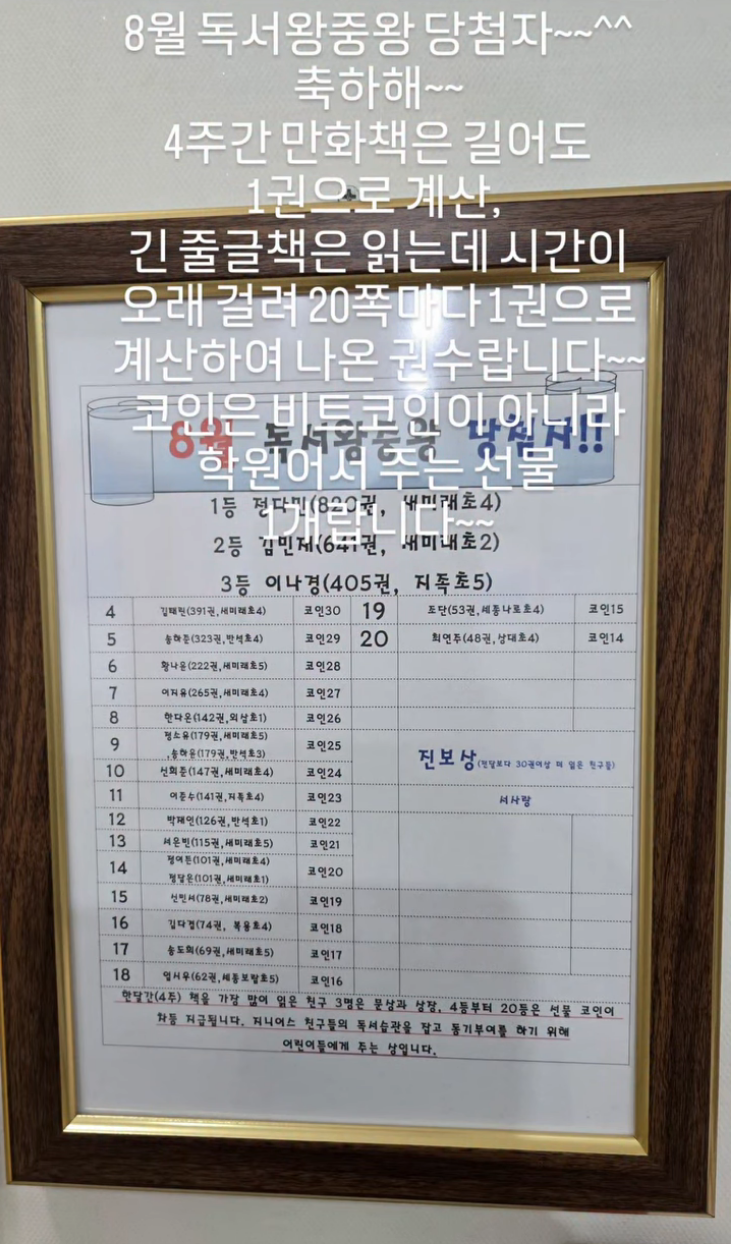 8월 독서왕중왕 당첨자~~^^
축하해~~
4주간 만화책은 길어도
1권으로 계산,
긴 줄글책은 읽는데 시간이
오래 걸려 20쪽마다 1권으로
계산하여 나온 권수랍니다~~
코인은 비트코인이 아니라
학원어서 주는 선물
1개랍니다~~
8월 독서왕중왕 당첨자!!
1등 (820권, 새미래초4)
2등 (641권, 새미래초2)
3등 이나경(405권, 지족초5)
4 김태린(391권,새미래초4) 코인30 19 조단(53권,세종나로초4) 코인15
5 송하준(323권,반석초4) 코인29 20 최연주(48권,상대초4) 코인14
6 황나운(222권,새미래초5) 코인28
7 이지유(265권,새미래초4) 코인27
8 한다온(142권,외삼초1) 코인26
9 정소율(179권,새미래초5)
,송하윤(179권,반석초3) 코인25
진보상(전달보다 30권이상 더 읽은 친구들)
10 신희준(147권,새미래초4) 코인24
11 이준수(141권,지족초4) 코인23 서사랑
12 박재인(126권,반석초1) 코인22
13 서은빈(115권,새미래초5) 코인21
14 (101권,새미래초4)
(101권,새미래초1) 코인20
15 신민서(78권,새미래초2) 코인19
16 김다겸(74권, 복용초4) 코인18
17 송도희(69권,새미래초5) 코인17
18 엄서우(62권,세종보람초5) 코인16
한달간(4주) 책을 가장 많이 읽은 친구 3명은 문상과 상장, 4등부터 20등은 선물 코인이
차등 지급됩니다. 지니어스 친구들의 독서습관을 잡고 동기부여를 하기 위해
어린이들에게 주는 상입니다.